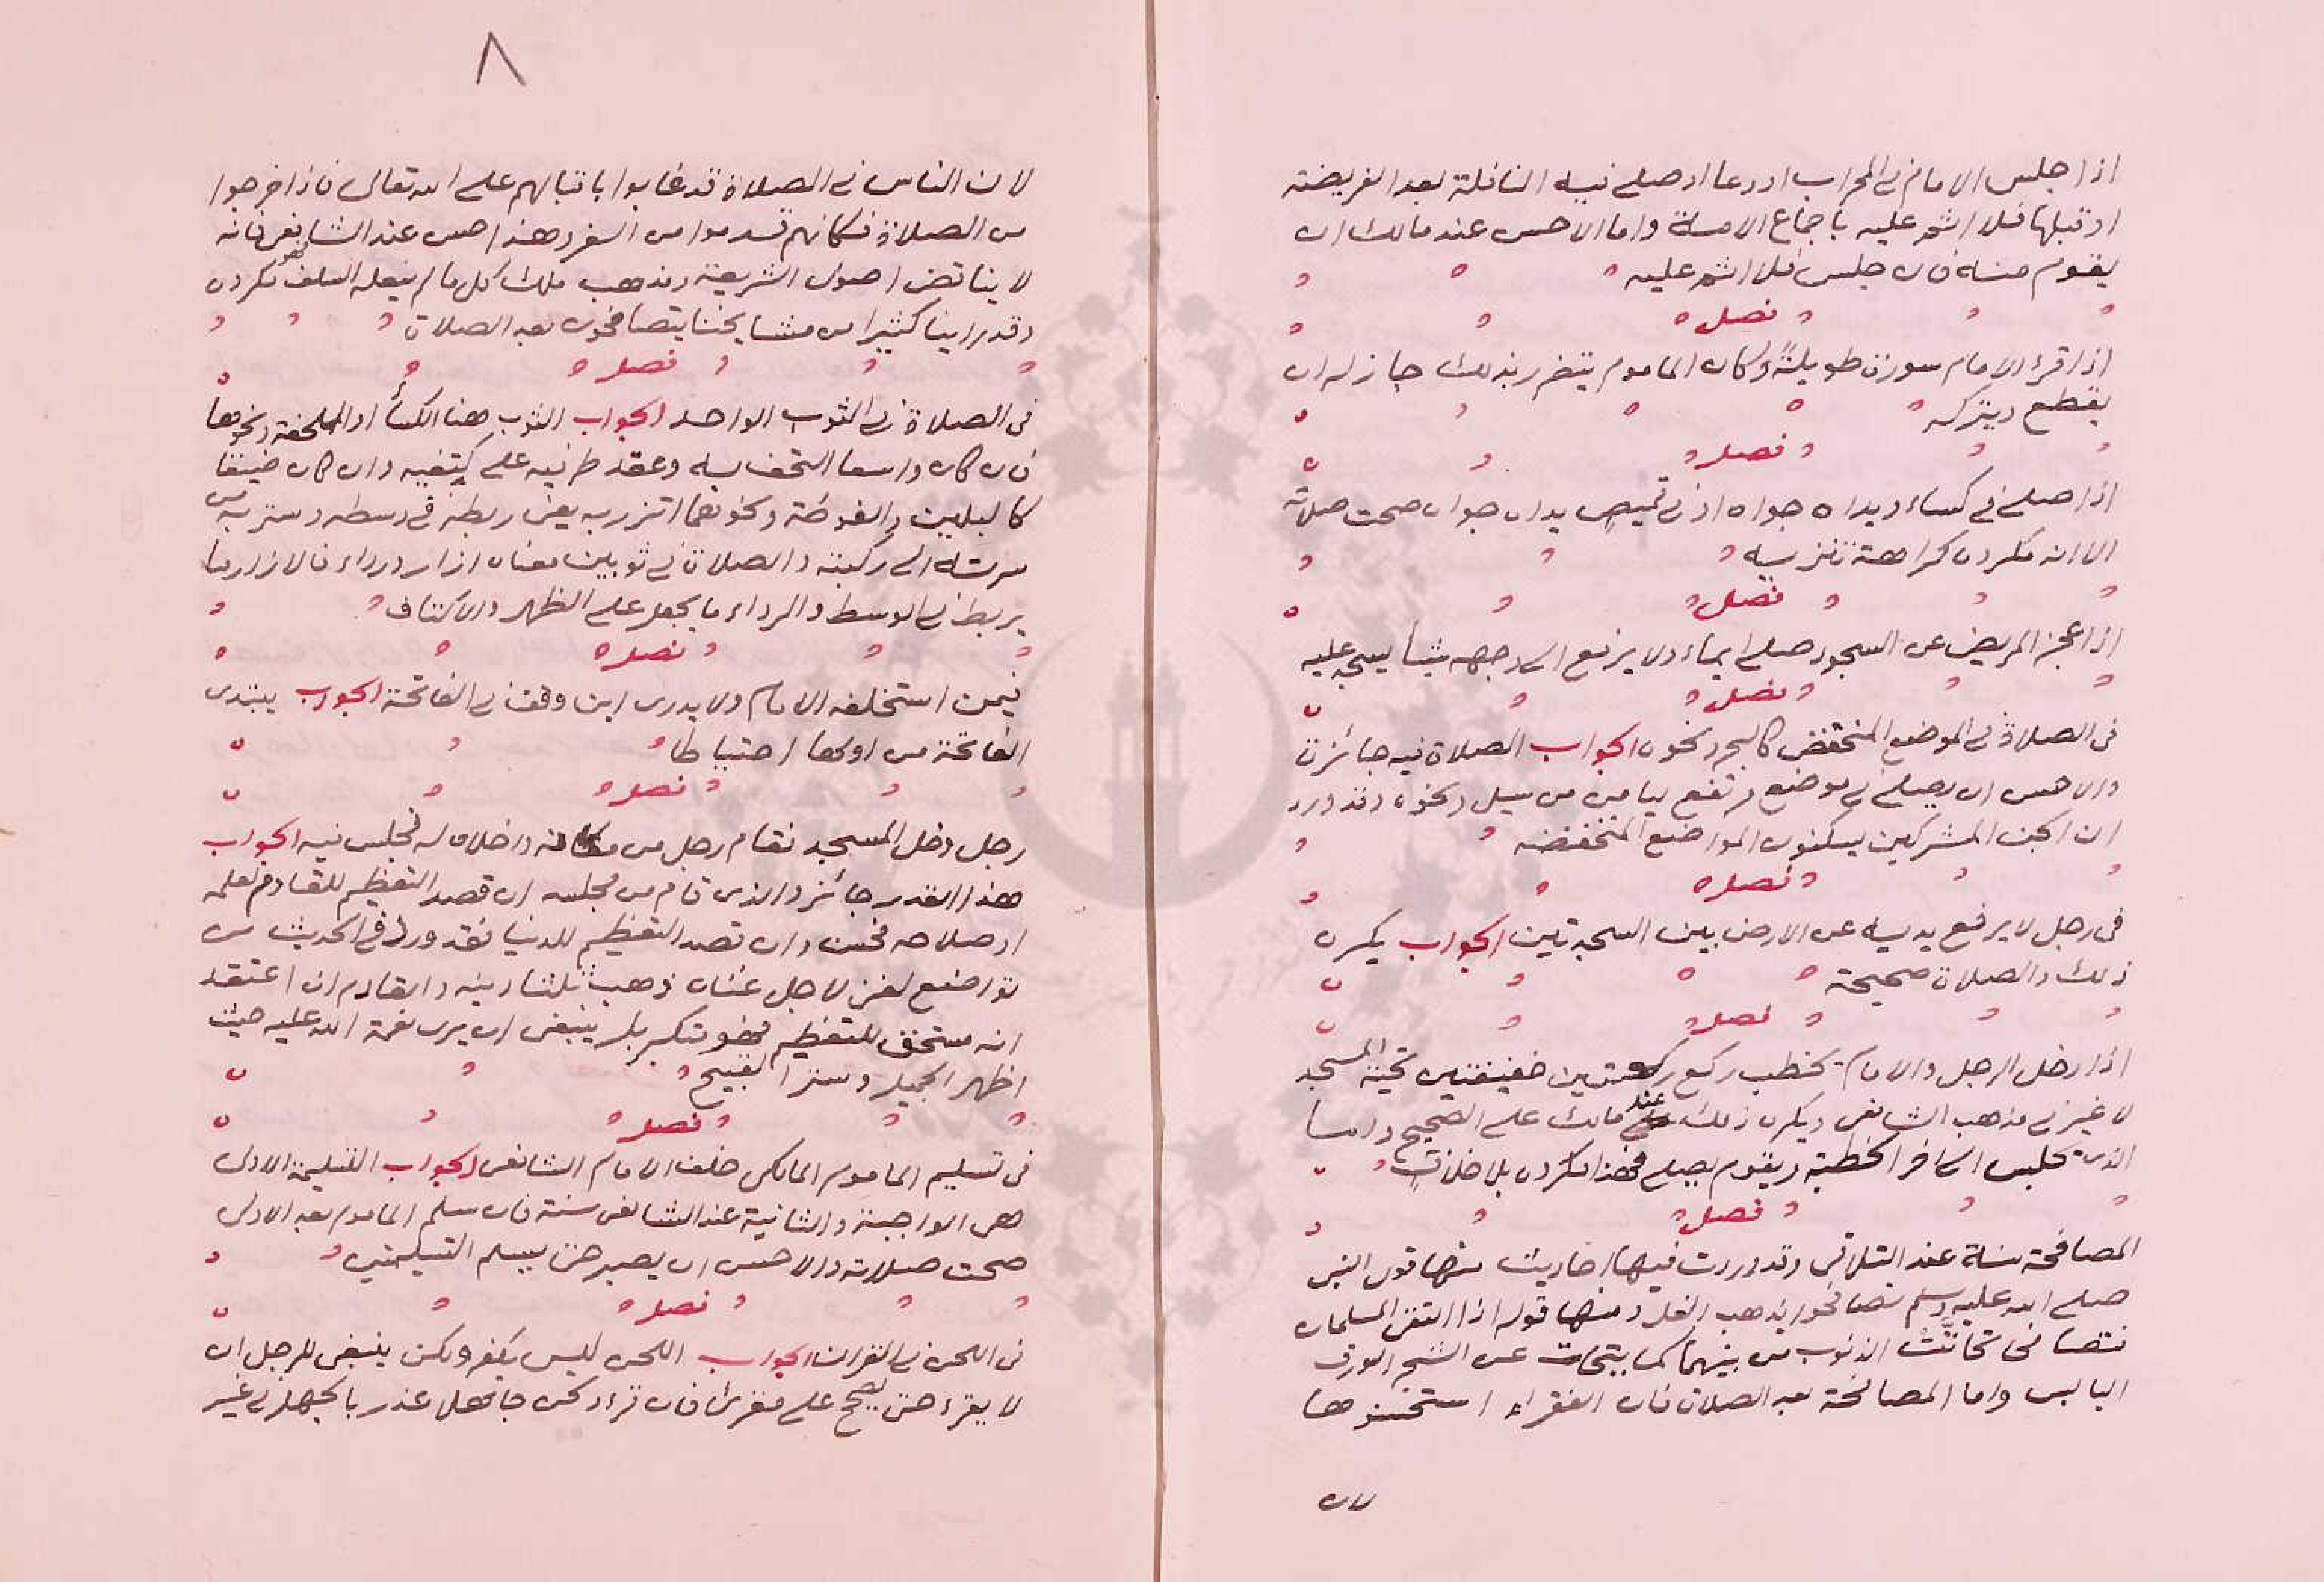 اذا جلس الامام في المحراب او دعا او صلى فيه النافلة بعد الفريضة
او قبلها فلا اثم عليه باجماع الامة واما الاحسن عند مالك ان
يقوم منه فان جلس فلا اثم عليه
فصل
اذا قرء الامام سورة طويلةً وكان الماموم يتضرر بذلك جاز له ان
يقطع ويتركه
فصل
اذا صلى في كساء ويداه جواه او في قميص يدان جوان صحت صلاته
الا انه مكروه كراهة تنزيه
فصل
اذا عجز المريض عن السجود صلى ايماء ولا يرفع الى وجهه شيأ يسجد عليه
فصل
في الصلاة في الموضع المنخفض كالبحر ونحوه الجواب الصلاة فيه جائزة
والاحسن ان يصلي في موضع مرتفع ليامن من سيل ونحوه وقد ورد
ان الجن المشركين يسكنون المواضع المنخفضه
فصل
في رجل لا يرفع يديه عن الارض بين السجدتين الجواب يكره
ذلك والصلاة صحيحة
فصل
اذا دخل الرجل والامام يخطب ركع ركعتين خفيفتين تحية المسجد
لا غير في مذهب الشافعي ويكره ذلك عند مالك على الصحيح واما
الذي يجلس الى اخر الخطبة ويقوم يصلي فهذا مكروه بلا خلاف
فصل
المصافحة سنة عند التلاقي وقد وردت فيها احاديث منها قول النبي
صلى الله عليه وسلم تصافحوا يذهب الغل ومنها قوله اذا التقى المسلمان
فتصافحا تحاتّت الذنوب من بينهما كما يتحات عن الشجر الورق
اليابس واما المصافحة بعد الصلاة فان الفقراء استحسنوها
لان
٨
لان الناس في الصلاة قد غابوا باقبالهم على الله تعالى فاذا خرجوا
من الصلاة فكانهم قدموا من السفر وهذا حسن عند الشافعي فانه
لا يناقض اصول الشريعة ومذهب ملك كل ما لم يفعله السلف فهو مكروه
وقد راينا كثيرا من مشايخنا يتصافحون بعد الصلاة
فصل
في الصلاة في الثوب الواحد الجواب الثوب هنا الكسأ او الملحفة ونحوها
فان كان واسعا التحف به وعقد طرفيه على كتفيه وان كان ضيقا
والفوطة ونحوهما اتزر به يعني ربطه في وسطه وستر به من
سرته الى ركبته والصلاة في ثوبين معناه ازار ورداء فالازار ما
يربط في الوسط والرداء ما يجعل على الظهر والاكتاف
فصل
فيمن استخلفه الامام ولا يدري اين وقف في الفاتحة الجواب يبتدى
الفاتحة من اولها احتياطا
فصل
رجل دخل المسجد فقام رجل من مكانه واخلاه له فجلس فيه الجواب
هذا القدر جائز والذي قام من مجلسه ان قصد التعظيم للقادم لعلمه
او صلاحه فحسن وان قصد التعظيم للدنيا فقد ورد في الحديث من
تواضع لغني لاجل غناه ذهب ثلثا دينه والقادم ان اعتقد
انه مستحق للتعظيم فهو متكبر بل ينبغي ان يرى نعمة الله عليه حيث
اظهر الجميل وستر القبيح
فصل
في تسليم الماموم المالكي خلف الامام الشافعي الجواب التسليمة الاولى
هي الواجبة والثانية عند الشافعي سنة فان سلم الماموم بعد الاولى
صحت صلاته والاحسن ان يصبر حتى يسلم التسليمتين
فصل
في اللحن في القران الجواب اللحن ليس بكفر ولكن ينبغي للرجل ان
لا يقرء حتى يصحح على مقرئ فان قرء ولحن جاهلا عذر بالجهل في غير